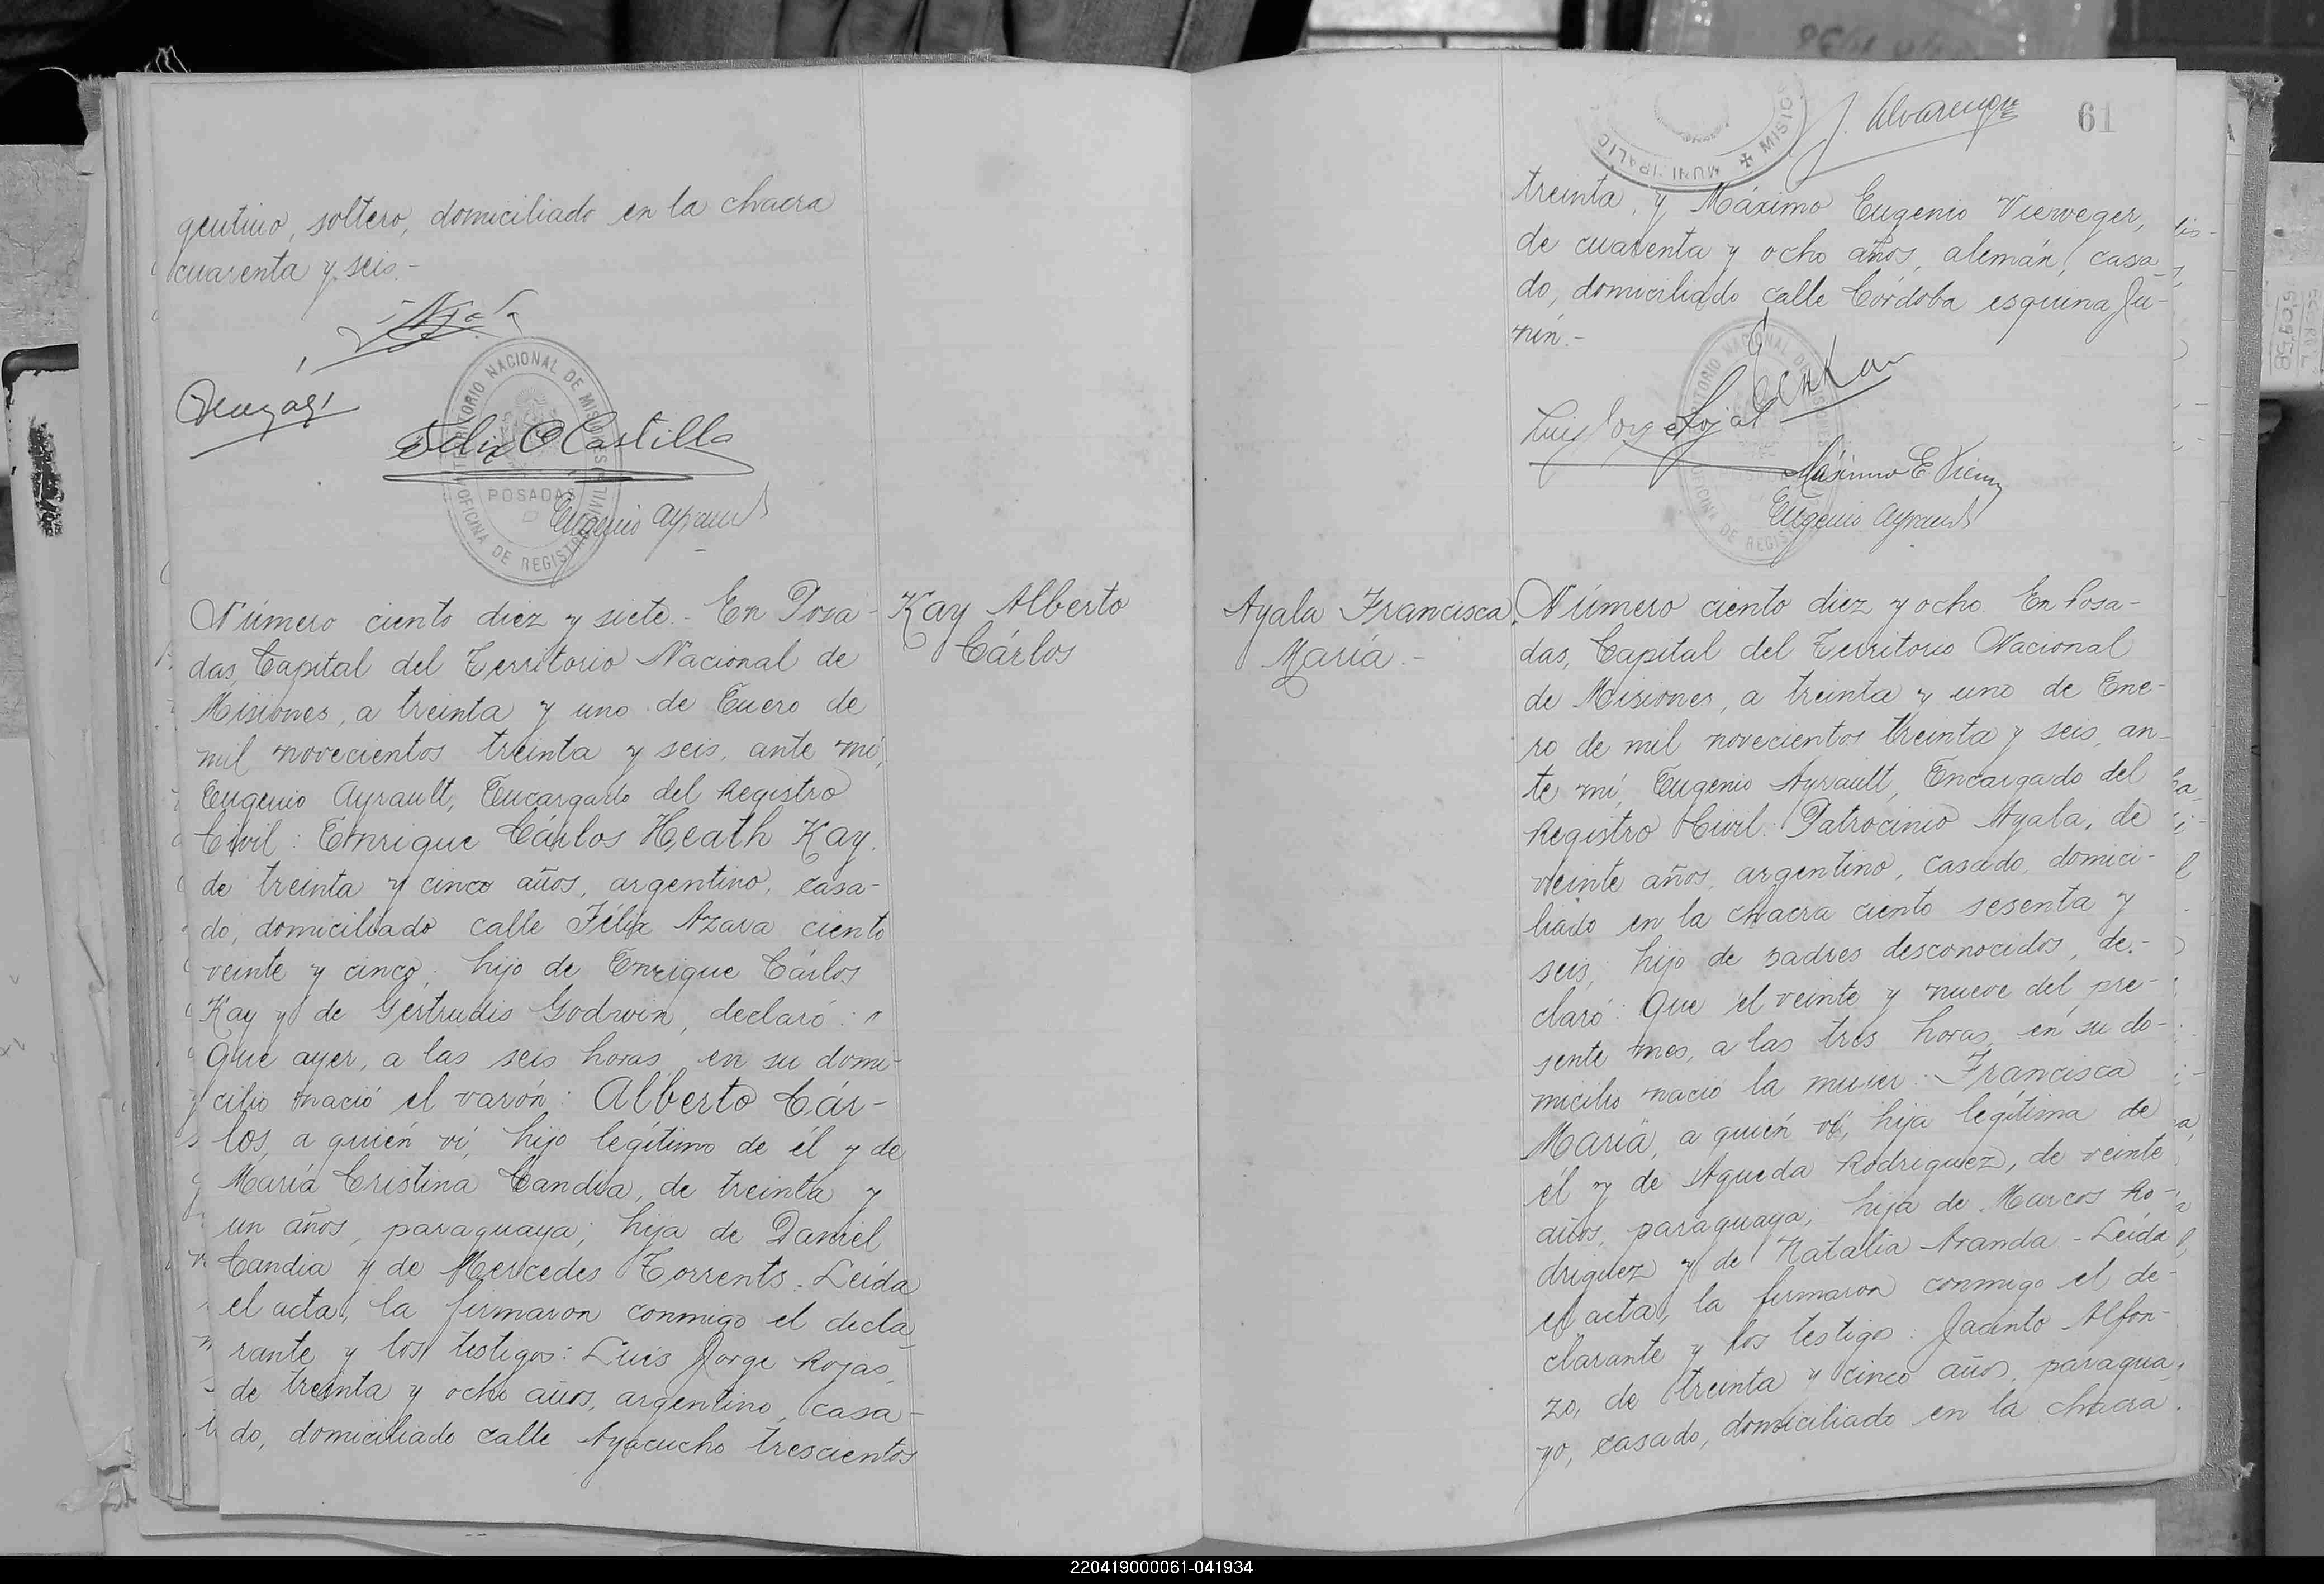 gentino, soltero, domiciliado en la chacra
cuarenta y seis.-
Felix O Castillo
TERRITORIO NACIONAL DE MISIONES
POSADAS
OFICINA DE REGISTRO CIVIL
Eugenio Ayrault
Número ciento diez y siete.- En Posa-
das, Capital del Territorio Nacional de
Misiones, a treinta y uno de Enero de
mil novecientos treinta y seis, ante mí,
Eugenio Ayrault, Encargado del Registro
Civil: Enrique Cárlos Heath Kay.
de treinta y cinco años, argentino, casa-
do, domiciliado calle Félix Azara ciento
veinte y cinco; hijo de Enrique Cárlos
Kay y de Gertrudis Godwin, declaró: "
Que ayer, a las seis horas, en su domi-
cilio nació el varón: Alberto Cár-
los, a quién ví, hijo legítimo de él y de
María Cristina Candia, de treinta y
un años, paraguaya; hija de Daniel
Candia y de Mercedes Torrents. Leída
el acta, la firmaron conmigo el decla-
rante y los testigos: Luis Jorge Rojas,
de treinta y ocho años, argentino, casa-
do, domiciliado calle Ayacucho trescientos
Kay Alberto
Cárlos
MUNICIPALID
MISIO
J. Alvarenga
61
treinta, y Máximo Eugenio Vierweger,
de cuarenta y ocho años, alemán, casa-
do, domiciliado calle Córdoba esquina Ju-
nín.-
Luis Jorge Rojas
Máximo E Vierw
Eugenio Ayrault
Ayala Francisca
María.-
Número ciento diez y ocho. En Posa-
das, Capital del Territorio Nacional
de Misiones, a treinta y uno de Ene-
ro de mil novecientos treinta y seis, an-
te mí, Eugenio Ayrault, Encargado del
Registro Civil: Patrocinio Ayala, de
veinte años, argentino, casado, domici-
liado en la chacra ciento sesenta y
seis, hijo de padres desconocidos, de-
claró: Que el veinte y nueve del pre-
sente mes, a las tres horas, en su do-
micilio nació la mujer: Francisca
María, a quién ví, hija legítima de
él y de Agueda Rodriguez, de veinte
años, paraguaya; hija de Marcos Ro-
driguez y de Natalia Aranda.- Leída
el acta, la firmaron conmigo el de-
clarante y los testigos: Jacinto Alfon-
zo, de treinta y cinco años, paragua-
yo, casado, domiciliado en la chacra
220419000061-041934